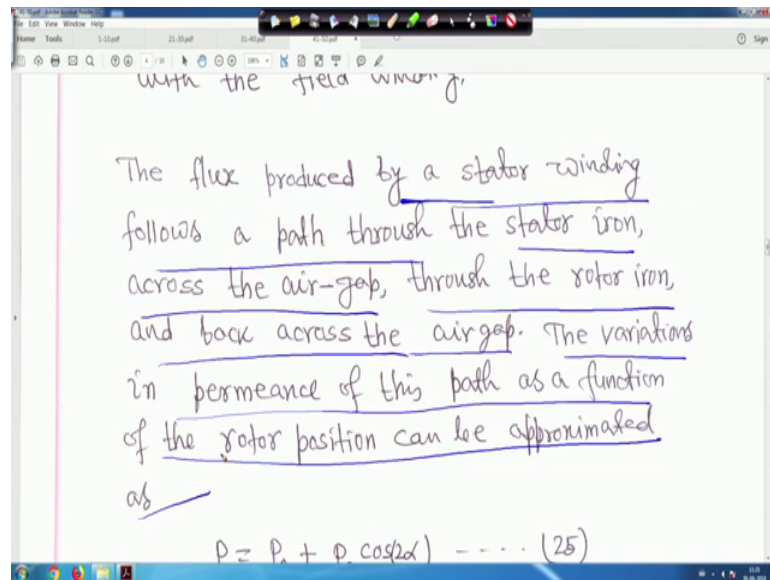 41-50.pdf - Adobe Acrobat Reader DC
File Edit View Window Help
Home Tools 1-10.pdf 21-30.pdf 31-40.pdf 41-50.pdf × Sign
with the field winding.
The flux produced by a stator winding
follows a path through the stator iron,
across the air-gap, through the rotor iron,
and back across the airgap. The variations
in permeance of this path as a function
of the rotor position can be approximated
as
P = P. + P cos(2α) ---- (25)